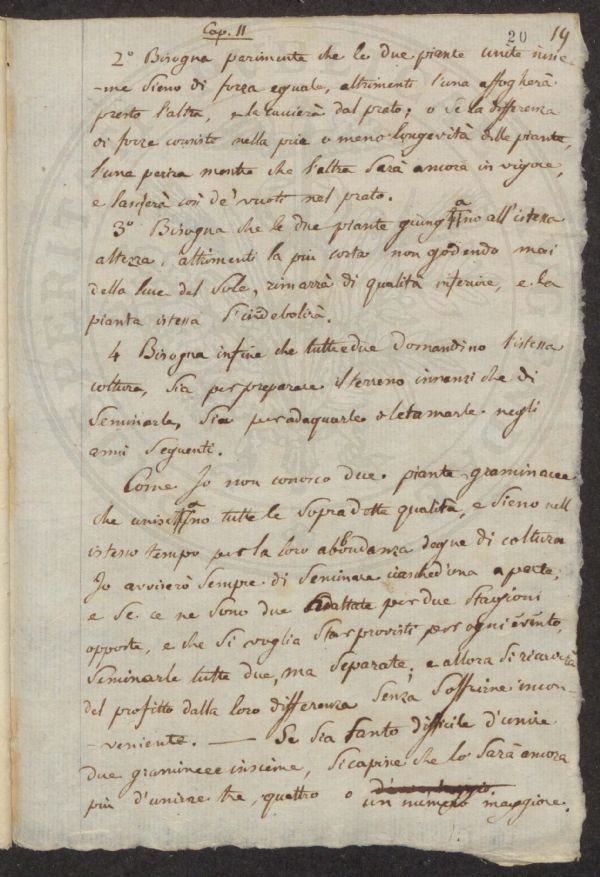 Cap. 11
20 19
2º Bisogna parimente che le due piante unite insie-
-me sieno di forza eguale, altrimenti l'una affogherà
presto l'altra, e la caccierà dal prato; o se la differenza
di forze consiste nella più o meno longevità delle piante,
l'una perirà mentre che l'altra sarà ancora in vigore,
e lascierà così de' vuoti nel prato.
3º Bisogna che le due piante giungano all'istessa
altezza, altrimenti la più corta non godendo mai
della luce del Sole, rimarrà di qualità inferiore, e la
pianta istessa s'indebolirà.
4 Bisogna infine che tutte e due domandino l'istessa
coltura, sia per preparare il terreno innanzi che di
seminarle, sia per adaquarle o letamarle negli
anni seguenti.
Come Io non conosco due piante graminacee
che uniscano tutte le sopradette qualità, e sieno nell
istesso tempo per la loro abbondanza degne di coltura
Io avviserò sempre di seminare ciascheduna a parte;
e se ce ne sono due adattate per due stagioni
opposte, e che si voglia star provvisti per ogni evento,
seminarle tutte due, ma separate; e allora si ricaverà
del profitto dalla loro differenza senza soffrirne incon-
-veniente. — Se sia tanto difficile d'unire
due graminee insieme, si capisce che lo sarà ancora
più d'unirne tre, quattro o
un numero maggiore.